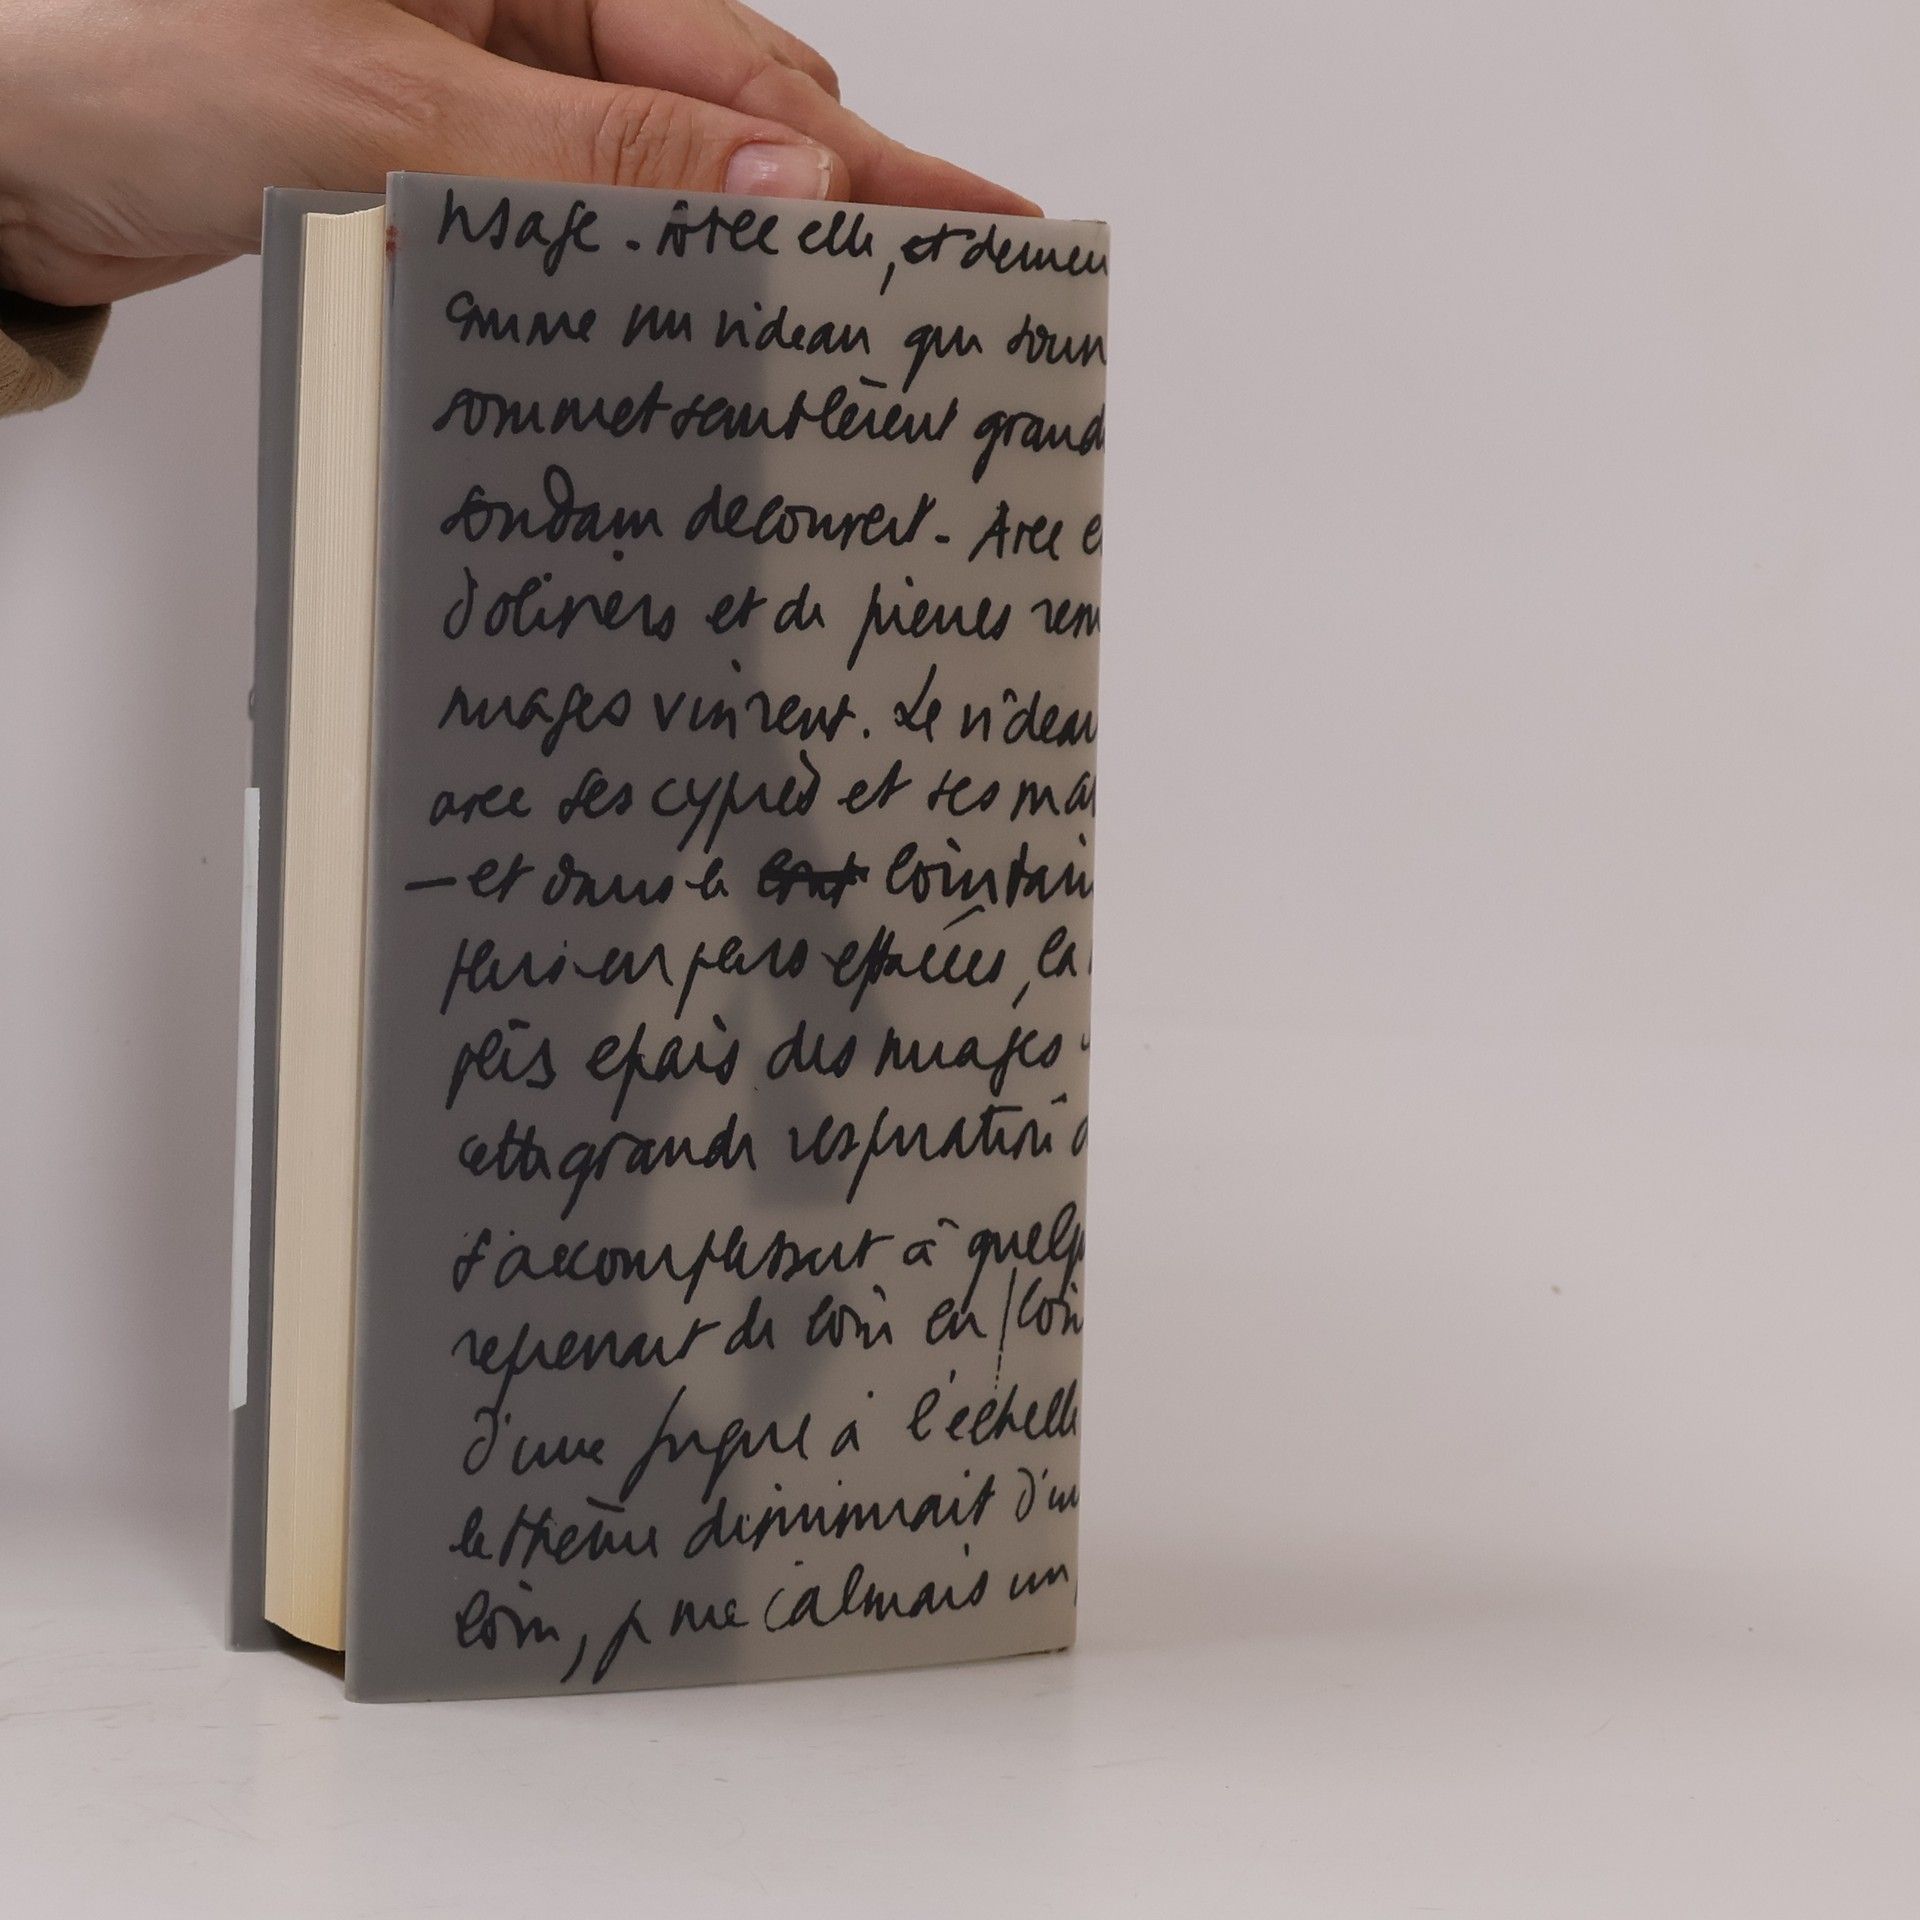 visage. Avec elle, et derrièr
comme un rideau qui s'ouvr
sommet semblèrent grand
soudain découvert. Avec e
d'oliviers et de pierres
nuages vinrent. Le rideau
avec ses cyprès et ses
— et dans le lointain
plus en plus effacées, la
plus épais des nuages
cette grande respiration d
s'accomplissait à quelq
reprenait de loin en loin
d'une fugue à l'échelle
le thème diminuait d'un
loin, je me calmais un